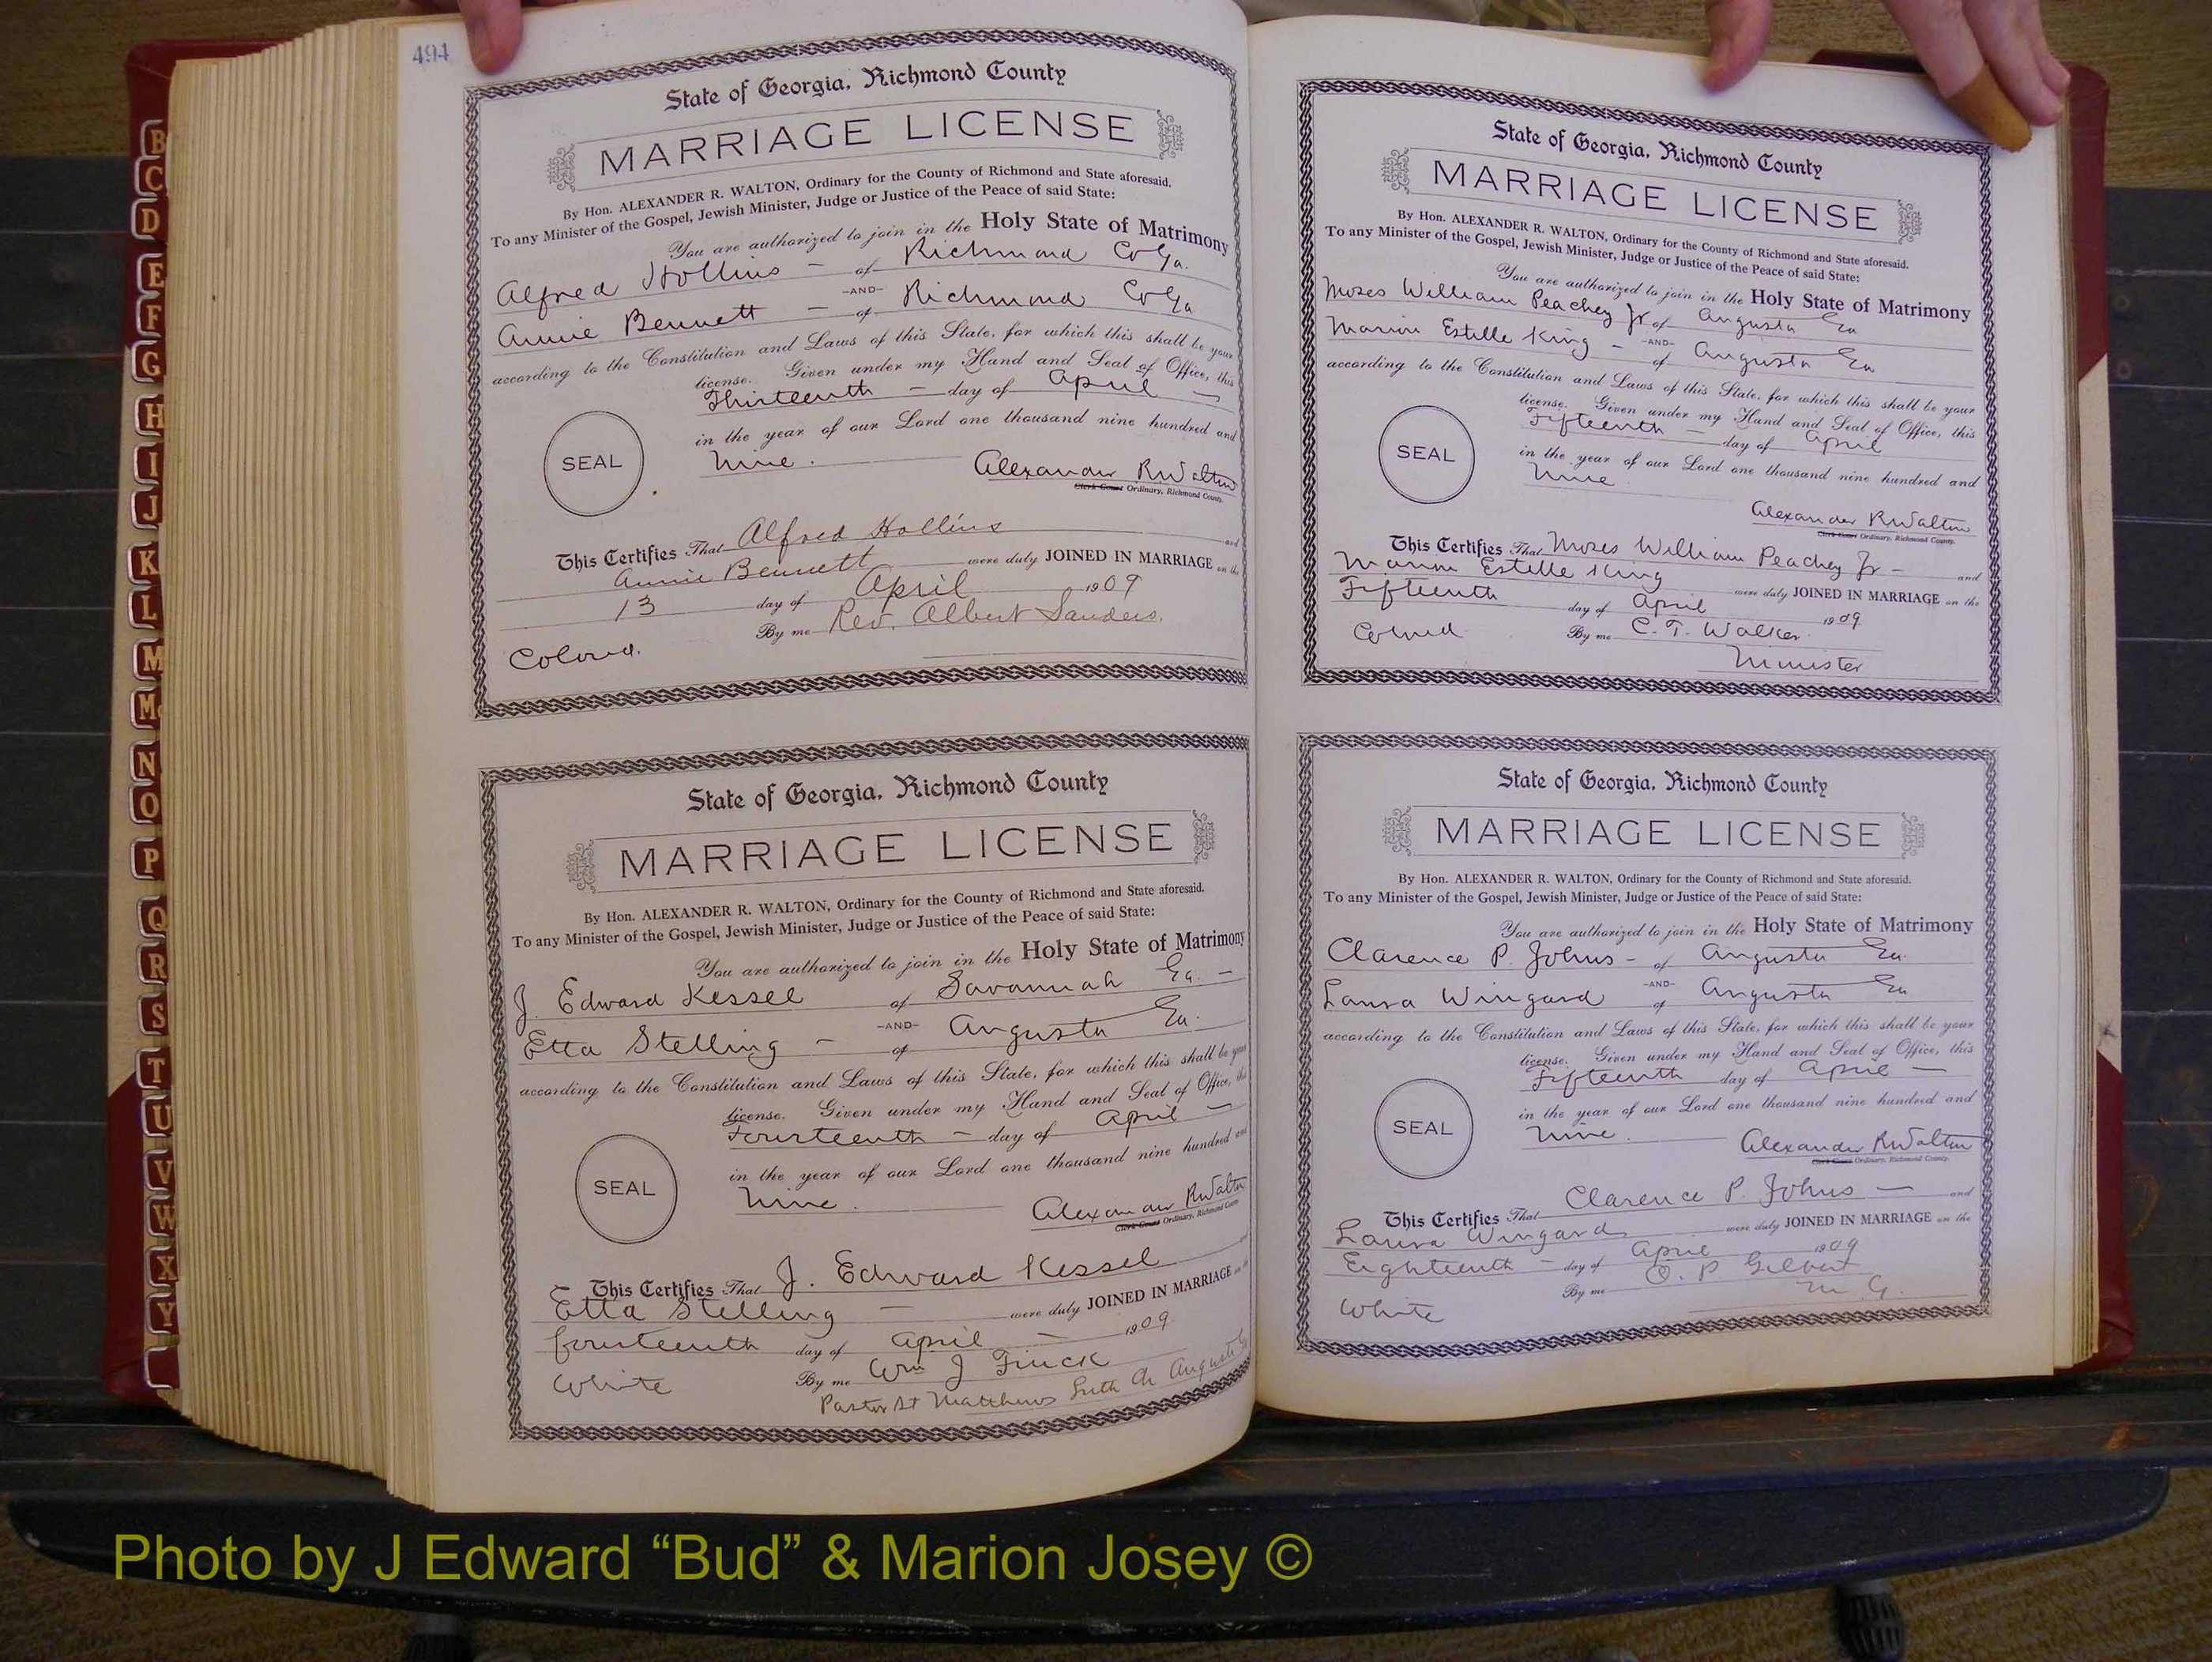 494
State of Georgia, Richmond County
MARRIAGE LICENSE
By Hon. ALEXANDER R. WALTON, Ordinary for the County of Richmond and State aforesaid.
To any Minister of the Gospel, Jewish Minister, Judge or Justice of the Peace of said State:
You are authorized to join in the Holy State of Matrimony
Alfred Hollins - of Richmond Co Ga.
-AND-
Annie Bennett - of Richmond Co Ga
according to the Constitution and Laws of this State, for which this shall be your
license. Given under my Hand and Seal of Office, this
Thirteenth - day of April -
in the year of our Lord one thousand nine hundred and
SEAL
nine.
Alexander R Walton
Clerk Court Ordinary, Richmond County.
This Certifies That Alfred Hollins and
Annie Bennett were duly JOINED IN MARRIAGE on the
13 day of April 1909
By me Rev. Albert Sanders.
Colored.
State of Georgia, Richmond County
MARRIAGE LICENSE
By Hon. ALEXANDER R. WALTON, Ordinary for the County of Richmond and State aforesaid.
To any Minister of the Gospel, Jewish Minister, Judge or Justice of the Peace of said State:
You are authorized to join in the Holy State of Matrimony
J. Edward Kessel of Savannah Ga. -
-AND-
Etta Stelling - of Augusta Ga.
according to the Constitution and Laws of this State, for which this shall be your
license. Given under my Hand and Seal of Office, this
Fourteenth - day of April -
in the year of our Lord one thousand nine hundred and
SEAL
nine.
Alexander R Walton
Clerk Court Ordinary, Richmond County
This Certifies That J. Edward Kessel
Etta Stelling - were duly JOINED IN MARRIAGE on the
fourteenth day of April - 1909.
By me Wm J Finck
White
Pastor St Matthews Luth Ch Augusta Ga
State of Georgia, Richmond County
MARRIAGE LICENSE
By Hon. ALEXANDER R. WALTON, Ordinary for the County of Richmond and State aforesaid.
To any Minister of the Gospel, Jewish Minister, Judge or Justice of the Peace of said State:
You are authorized to join in the Holy State of Matrimony
Moses William Peachey Jr of Augusta Ga
-AND-
Marion Estelle King - of Augusta Ga
according to the Constitution and Laws of this State, for which this shall be your
license. Given under my Hand and Seal of Office, this
Fifteenth - day of April
in the year of our Lord one thousand nine hundred and
SEAL
nine.
Alexander R Walton
Clerk Court Ordinary, Richmond County.
This Certifies That Moses William Peachey Jr - and
Marion Estelle King were duly JOINED IN MARRIAGE on the
Fifteenth day of April 1909.
Colored By me C. T. Walker.
Minister
State of Georgia, Richmond County
MARRIAGE LICENSE
By Hon. ALEXANDER R. WALTON, Ordinary for the County of Richmond and State aforesaid.
To any Minister of the Gospel, Jewish Minister, Judge or Justice of the Peace of said State:
You are authorized to join in the Holy State of Matrimony
Clarence P. Johns - of Augusta Ga.
-AND-
Laura Wingard of Augusta Ga
according to the Constitution and Laws of this State, for which this shall be your
license. Given under my Hand and Seal of Office, this
Fifteenth day of April -
in the year of our Lord one thousand nine hundred and
SEAL
nine.
Alexander R Walton
Clerk Court Ordinary, Richmond County.
This Certifies That Clarence P. Johns - and
Laura Wingard were duly JOINED IN MARRIAGE on the
Eighteenth - day of April 1909
By me O. P Gilbert
White
M G.
B
C
D
E
F
G
H
I
J
K
L
M
Mc
N
O
P
Q
R
S
T
U
V
W
X
Y
Photo by J Edward “Bud” & Marion Josey ©